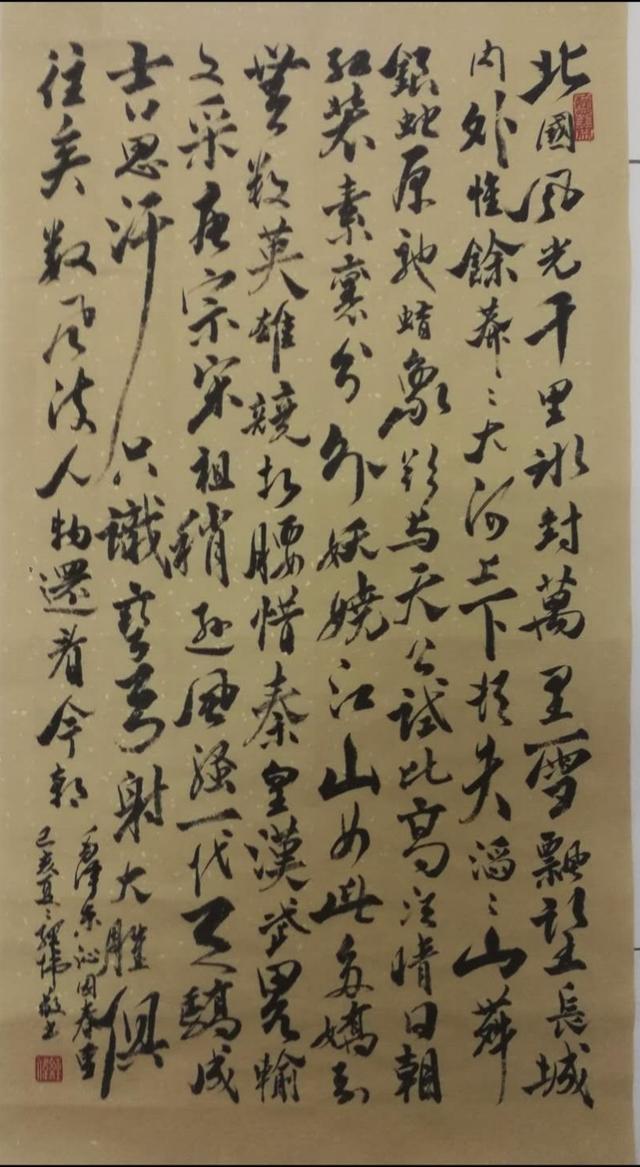 北國風光千里冰封萬里雪飄望長城
内外惟餘莽〻大河上下頓失滔〻山舞
銀蛇原馳蜡象欲与天公試比高須晴日朝
紅裝素裹分外妖嬈江山如此多嬌引
無數英雄競折腰惜秦皇漢武畧輸
文采唐宗宋祖稍遜風騷一代天驕成
吉思汗只識彎弓射大雕俱
往矣數風流人物還看今朝
毛澤東沁園春雪
己亥夏敬书